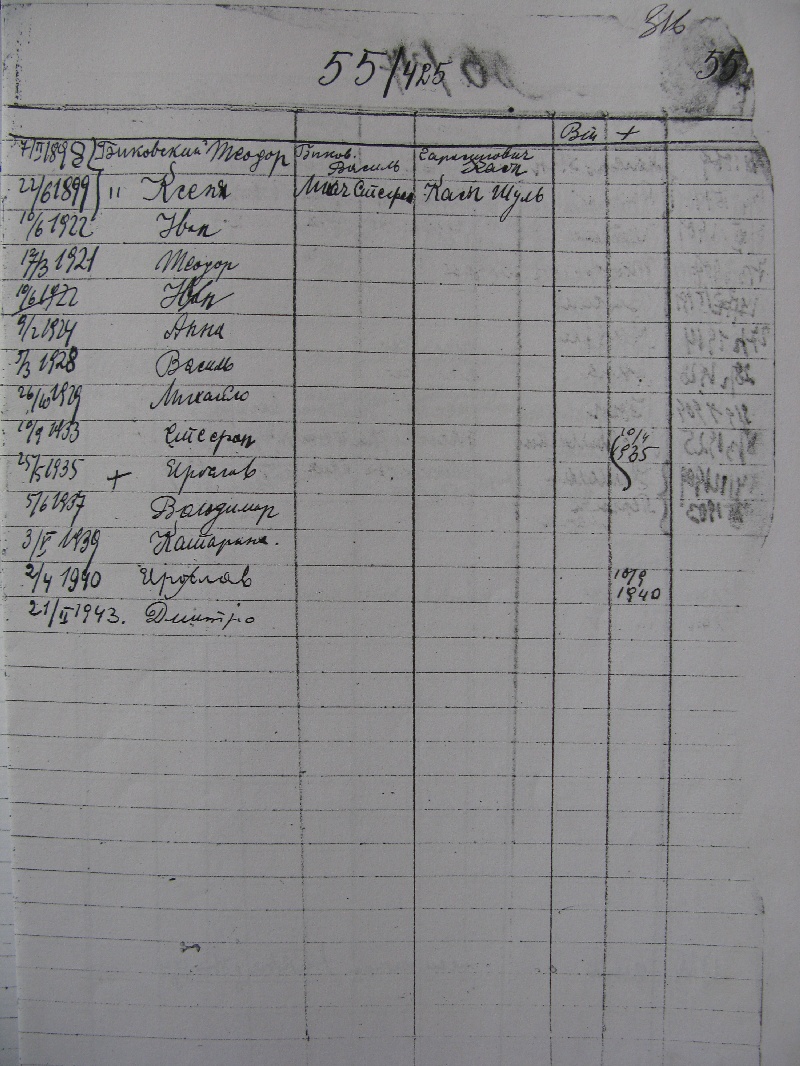 316
55/425 55
Вік +
7/II 1898 Биковский Теодор Биков. Василь
22/6 1899 " Ксеня Стефан Касы Шуль
10/6 1922 Іван
17/3 1921 Теодор
10/6 1922 Іван
9/2 1924 Анна
5/3 1928 Василь
26/10 1929 Михайло
10/9 1933 Стефан 10/4 1935
25/5 1935 + Ярослав
5/6 1937 Володимир
3/V 1939 Катарина.
2/4 1940 Ярослав 10/9 1940
21/II 1943. Дмитро